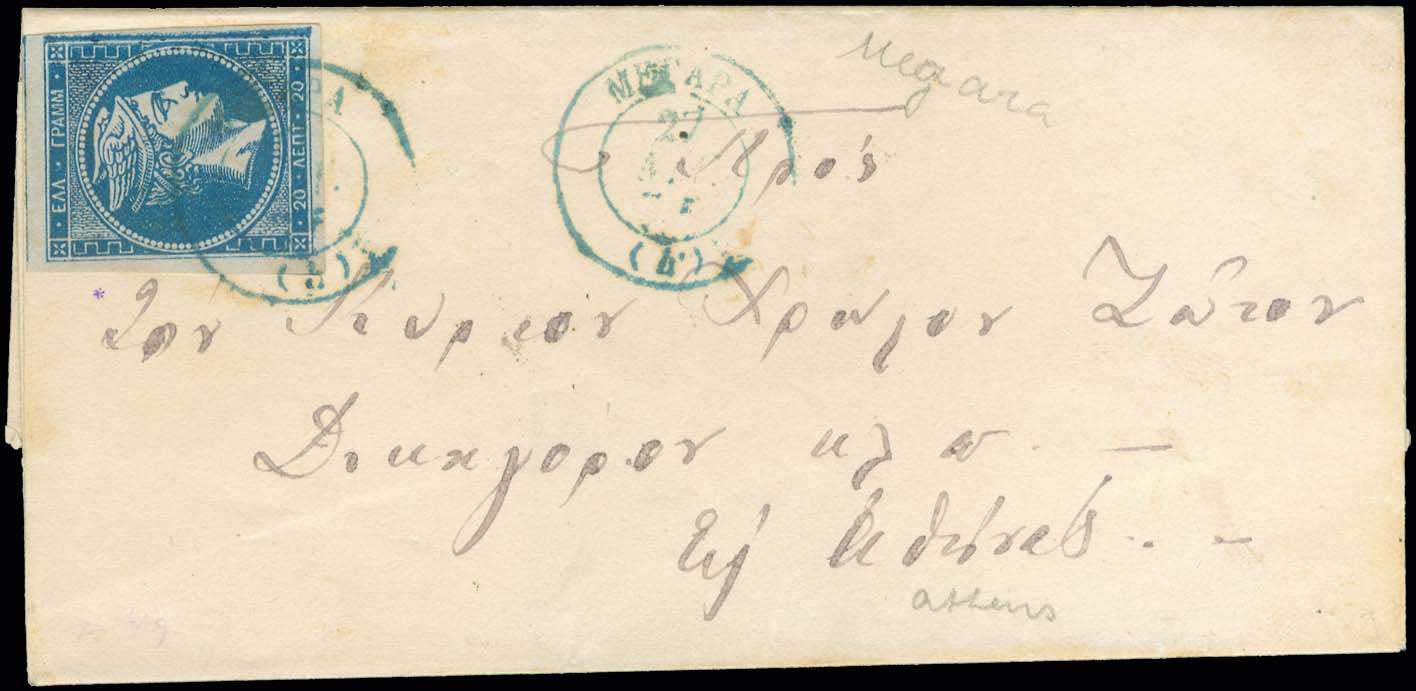 ΕΛΛ · ΓΡΑΜΜ
20 · ΛΕΠΤ · 20
ΡΑ
ΜΕΓΑΡΑ
27
(4)
(4)
Megara
Πρός
Τον Κυριον Ζώτον
Δικηγορον κλπ. —
Εις Αθήνας. . —
athens